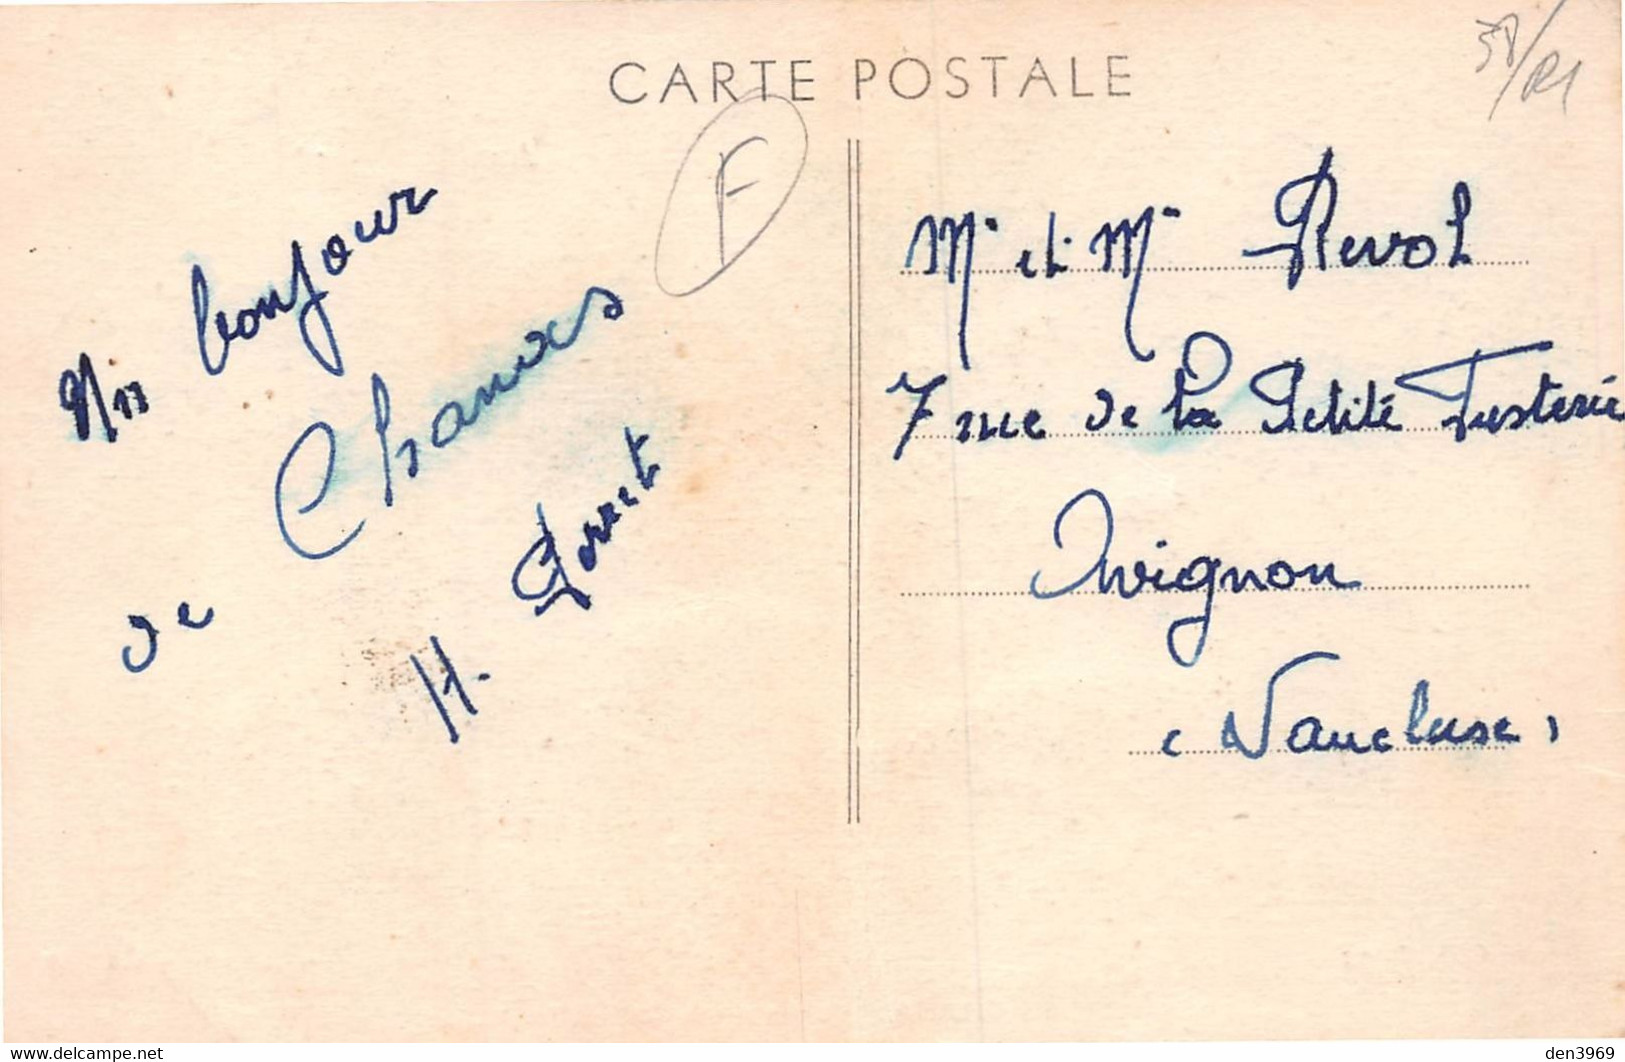 CARTE POSTALE
F
Un bonjour
de Chanas
H.
Mr et Mr Revol
7 rue de la Petite Fusterie
Avignon
(Vaucluse)
delcampe.net
den3969